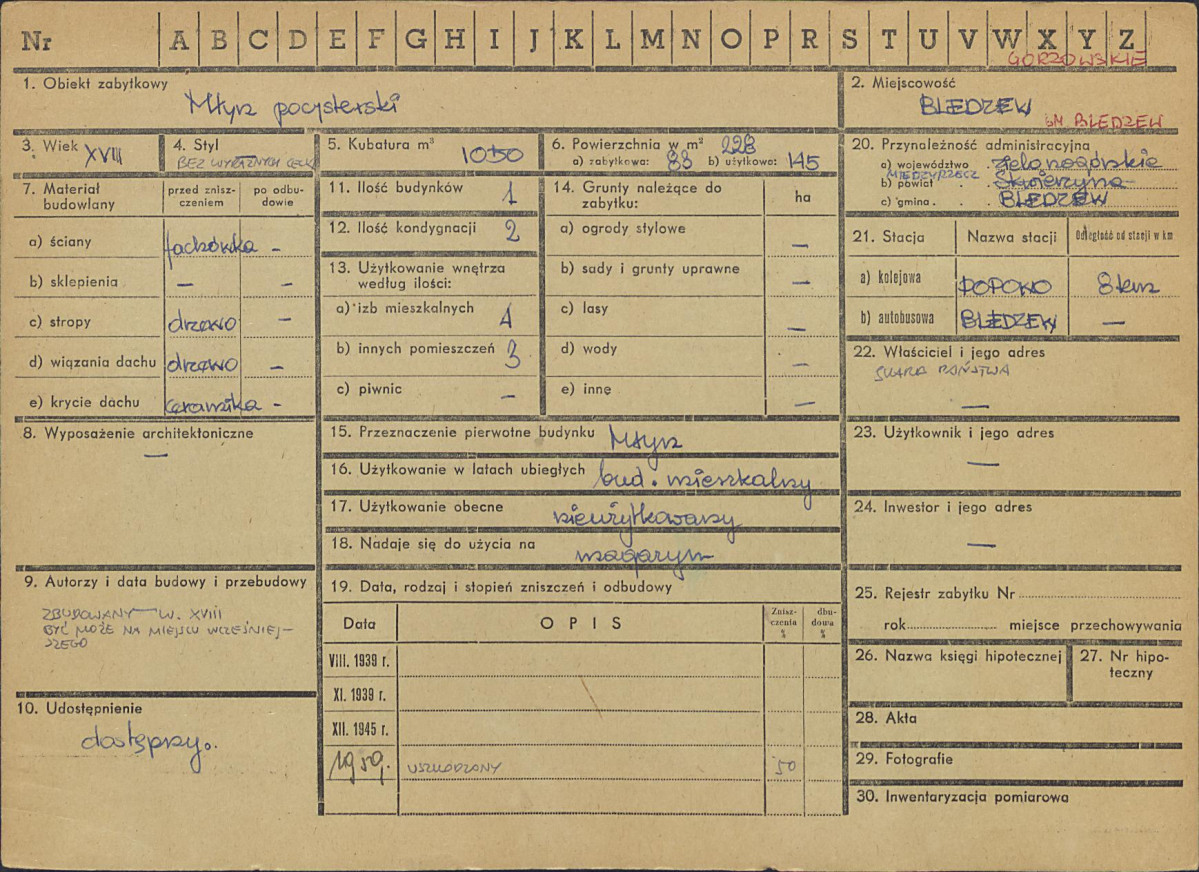 Nr A B C D E F G H I J K L M N O P R S T U V W X Y Z
GORZOWSKIE
1. Obiekt zabytkowy
Młyn pocysterski
2. Miejscowość
BLEDZEW
GM BLEDZEW
3. Wiek XVIII
4. Styl
BEZ WYRAŹNYCH CECH
5. Kubatura m³ 1050
6. Powierzchnia w m² 228
a) zabytkowa: 83 b) użytkowa: 145
7. Materiał budowlany
przed znisz-
czeniem
po odbu-
dowie
a) ściany fachówka -
b) sklepienia - -
c) stropy drzewo -
d) wiązania dachu drzewo -
e) krycie dachu ceramika -
8. Wyposażenie architektoniczne
—
9. Autorzy i data budowy i przebudowy
ZBUDOWANY W. XVIII
BYĆ MOŻE NA MIEJSCU WCZEŚNIEJ-
SZEGO
10. Udostępnienie
dostępny.
11. Ilość budynków 1
12. Ilość kondygnacji 2
13. Użytkowanie wnętrza
według ilości:
a) izb mieszkalnych 4
b) innych pomieszczeń 3
c) piwnic -
14. Grunty należące do
zabytku:
ha
a) ogrody stylowe —
b) sady i grunty uprawne —
c) lasy —
d) wody —
e) inne —
15. Przeznaczenie pierwotne budynku Młyn
16. Użytkowanie w latach ubiegłych bud. mieszkalny
17. Użytkowanie obecne nieużytkowany
18. Nadaje się do użycia na magazyn
19. Data, rodzaj i stopień zniszczeń i odbudowy
Data OPIS
Znisz-
czenia
%
dbu-
dowa
%
VIII. 1939 r.
XI. 1939 r.
XII. 1945 r.
1959. USZKODZONY 50
20. Przynależność administracyjna
a) województwo zielonogórskie
MIĘDZYRZECZ
b) powiat Skwierzyna
c) gmina BLEDZEW
21. Stacja Nazwa stacji Odległość od stacji w km
a) kolejowa POPOWO 8 km
b) autobusowa BLEDZEW —
22. Właściciel i jego adres
SKARB PAŃSTWA
—
23. Użytkownik i jego adres
—
24. Inwestor i jego adres
—
25. Rejestr zabytku Nr
rok miejsce przechowywania
26. Nazwa księgi hipotecznej
27. Nr hipo-
teczny
28. Akta
29. Fotografie
30. Inwentaryzacja pomiarowa